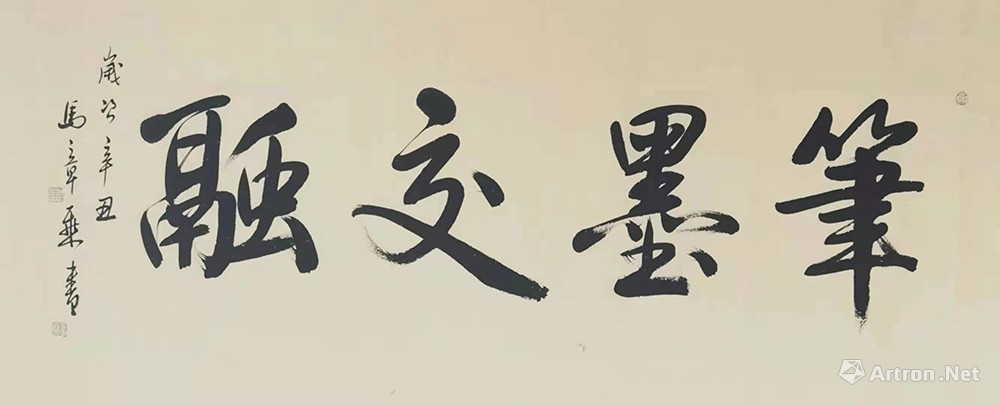 筆墨交融
歲次辛丑
馬章乘書
Artron.Net